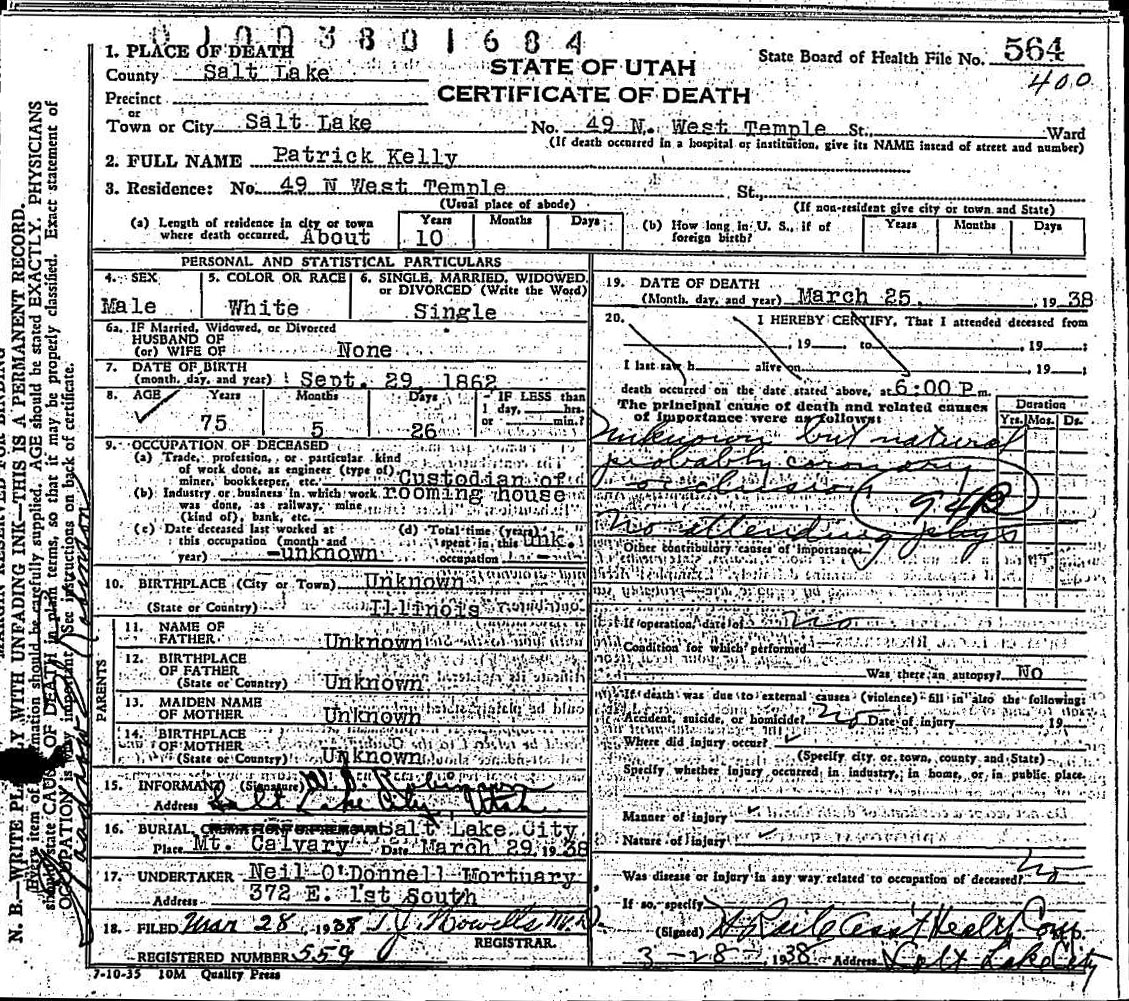 0100380 1684
1. PLACE OF DEATH
County Salt Lake
STATE OF UTAH
CERTIFICATE OF DEATH
State Board of Health File No. 564
400
Precinct
or
Town or City Salt Lake No. 49 N. West Temple St., Ward
(If death occurred in a hospital or institution, give its NAME instead of street and number)
2. FULL NAME Patrick Kelly
3. Residence: No. 49 N West Temple St.,
(Usual place of abode) (If non-resident give city or town and State)
(a) Length of residence in city or town where death occurred. About 10 Years Months Days
(b) How long in U. S., if of foreign birth? Years Months Days
PERSONAL AND STATISTICAL PARTICULARS
4. SEX Male
5. COLOR OR RACE White
6. SINGLE, MARRIED, WIDOWED, or DIVORCED (Write the Word) Single
6a. IF Married, Widowed, or Divorced
HUSBAND OF
(or) WIFE OF None
7. DATE OF BIRTH
(month, day, and year) Sept. 29, 1862
8. AGE Years 75 Months 5 Days 26
IF LESS than
1 day, hrs.
or min.?
9. OCCUPATION OF DECEASED
(a) Trade, profession, or particular kind
of work done, as engineer (type of)
miner, bookkeeper, etc. Custodian of
(b) Industry or business in which work rooming house
was done, as railway, mine
(kind of), bank, etc.
(c) Date deceased last worked at
this occupation (month and
year) -unknown
(d) Total time (years)
spent in this unk.
occupation -
10. BIRTHPLACE (City or Town) Unknown
(State or Country) Illinois
PARENTS
11. NAME OF
FATHER Unknown
12. BIRTHPLACE
OF FATHER
(State or Country) Unknown
13. MAIDEN NAME
OF MOTHER Unknown
14. BIRTHPLACE
OF MOTHER
(State or Country) Unknown
15. INFORMANT (Signature)
Address Salt Lake City Utah
16. BURIAL, CREMATION OR REMOVAL Salt Lake City
Place Mt. Calvary Date March 29, 1938
17. UNDERTAKER Neil O'Donnell Mortuary
Address 372 E. 1st South
18. FILED Mar 28, 1938 T. J. Howells M.D.
REGISTRAR.
REGISTERED NUMBER 559
7-10-35 10M Quality Press
19. DATE OF DEATH
(Month, day, and year) March 25, 1938
20. I HEREBY CERTIFY, That I attended deceased from
, 19 to , 19 ;
I last saw h alive on , 19 ;
death occurred on the date stated above, at 6:00 P m.
The principal cause of death and related causes
of importance were as follows:
Duration
Yrs. Mos. Ds.
Unknown but natural
probably coronary
occlusion 94B
No attending phys
Other contributory causes of importance:
If operation, date of No
Condition for which performed
Was there an autopsy? No
If death was due to external causes (violence) fill in also the following:
Accident, suicide, or homicide? No Date of injury 19
Where did injury occur?
(Specify city or town, county and State)
Specify whether injury occurred in industry, in home, or in public place.
Manner of injury
Nature of injury
Was disease or injury in any way related to occupation of deceased? No
If so, specify
(Signed) Asst Health Com
3-28-, 1938 Address Salt Lake City
N. B.—WRITE PLAINLY WITH UNFADING INK—THIS IS A PERMANENT RECORD.
MARGIN RESERVED FOR BINDING